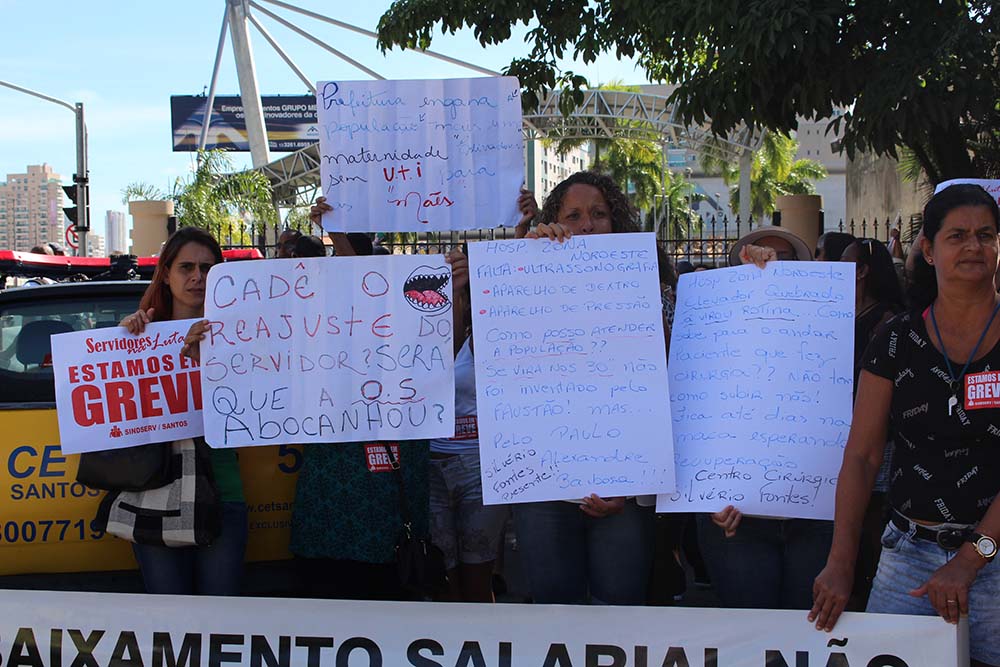 Empreendimentos GRUPO ME
os inovadores da c
3261.6
Prefeitura engana
população mais um
maternidade Silvério
sem uti para
as Mães
Servidores na Luta
ESTAMOS EM
GREVE
SINDSERV / SANTOS
CADÊ O
REAJUSTE DO
SERVIDOR? SERÁ
QUE A O.S
ABOCANHOU?
HOSP ZONA
NOROESTE
FALTA: • ULTRASSONOGRAFIA
• APARELHO DE DENTRO
• APARELHO DE PRESSÃO
COMO POSSO ATENDER
A POPULAÇÃO??
SE VIRA NOS 30 NÃO
FOI INVENTADO PELO
FAUSTÃO! MAS...
PELO PAULO
Alexandre
Barbosa !!!
SILVÉRIO
FONTES
PRESENTE!!
HOSP ZONA NOROESTE
Elevador Quebrado
já virou Rotina... Como
desce para o andar
Paciente que fez
cirurgia?? Não tem
como subir nas!
Fica até dias na
maca esperando
recuperação
Centro Cirúrgico
SILVÉRIO FONTES!
CET
SANTOS
3007719
www.cetsan
EXCLUSIV
05
ESTAMOS EM
GREVE
ESTAMOS EM
GREVE
FRIDAY
FRIDAY
FRIDAY
BAIXAMENTO SALARIAL NÃO